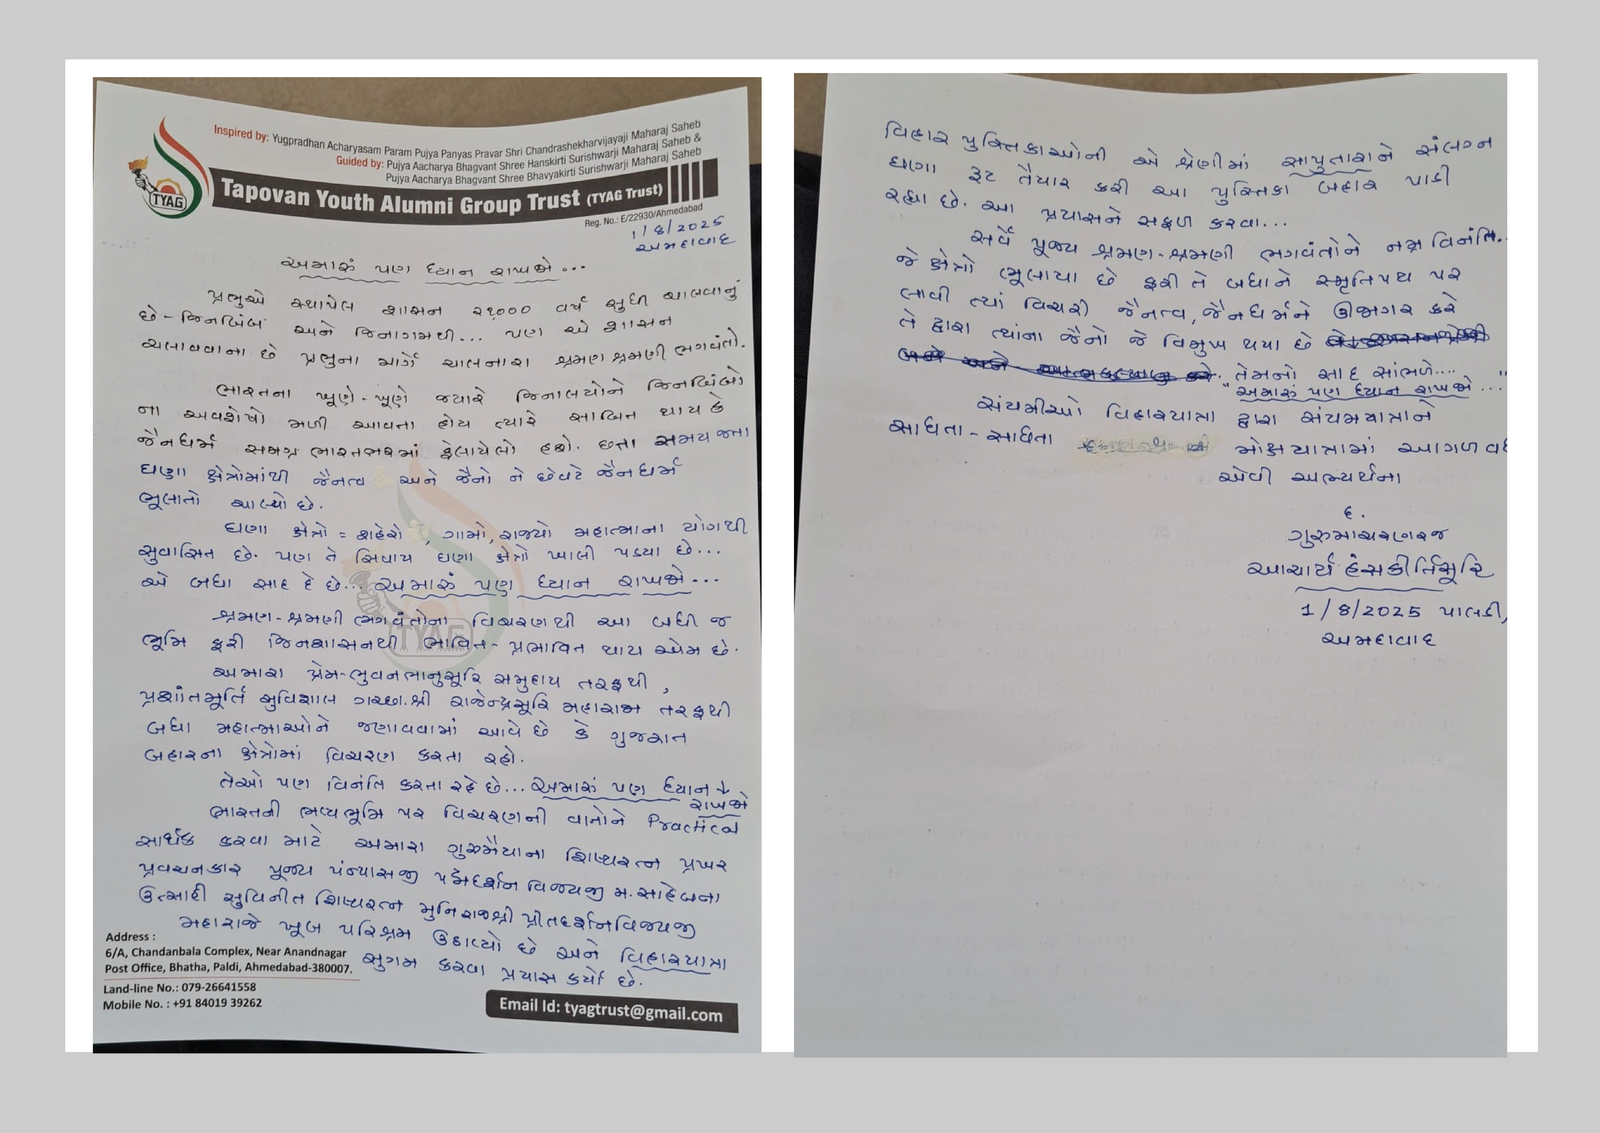 Inspired by: Yugpradhan Acharyasam Param Pujya Panyas Pravar Shri Chandrashekharvijayaji Maharaj Saheb
Guided by: Pujya Aacharya Bhagvant Shree Hanskirti Surishwarji Maharaj Saheb &
Pujya Aacharya Bhagvant Shree Bhavyakirti Surishwarji Maharaj Saheb
TYAG
Tapovan Youth Alumni Group Trust (TYAG Trust)
Reg. No.: E/22930/Ahmedabad
1/8/2025
અમદાવાદ
અમારું પણ ધ્યાન રાખજો...
પ્રભુએ સ્થાપેલ શાસન ૨૧૦૦૦ વર્ષ સુધી ચાલવાનું
છે - જિનબિંબ અને જિનાગમથી... પણ એ શાસન
ચલાવવાના છે પ્રભુના માર્ગે ચાલનારા શ્રમણ શ્રમણી ભગવંતો.
ભારતના ખૂણે-ખૂણે જ્યારે જિનાલયોને જિનબિંબો
ના અવશેષો મળી આવતા હોય ત્યારે સાબિત થાય કે
જૈનધર્મ સમગ્ર ભારતભરમાં ફેલાયેલો હશે. છતા સમય જતા
ઘણા ક્ષેત્રોમાંથી જૈનત્વ અને જૈનો ને છેવટે જૈનધર્મ
ભૂલાતો ચાલ્યો છે.
ઘણા ક્ષેત્રો = શહેરો, ગામો, રાજ્યો મહાત્માના યોગથી
સુવાસિત છે. પણ તે સિવાય ઘણા ક્ષેત્રો ખાલી પડયા છે...
એ બધા સાદ દે છે... અમારું પણ ધ્યાન રાખજો...
શ્રમણ-શ્રમણી ભગવંતોના વિચરણથી આ બધી જ
ભૂમિ ફરી જિનશાસનથી ભાવિત-પ્રભાવિત થાય એમ છે.
TYAG
અમારા પ્રેમ-ભુવનભાનુસૂરિ સમુદાય તરફથી,
પ્રશાંતમૂર્તિ સુવિશાલ ગચ્છા.શ્રી રાજેન્દ્રસૂરિ મહારાજા તરફથી
બધા મહાત્માઓને જણાવવામાં આવે છે કે ગુજરાત
બહારના ક્ષેત્રોમાં વિચરણ કરતા રહો.
તેઓ પણ વિનંતિ કરતા રહે છે... અમારું પણ ધ્યાન
રાખજો
ભારતની ભવ્યભૂમિ પર વિચરણની વાતોને Practical
સાર્થક કરવા માટે અમારા ગુરુમૈયાના શિષ્યરત્ન પ્રખર
પ્રવચનકાર પૂજ્ય પંન્યાસજી પદ્મદર્શન વિજયજી મ.સાહેબના
ઉત્સાહી સુવિનીત શિષ્યરત્ન મુનિરાજશ્રી પ્રીતદર્શનવિજયજી
મહારાજે ખૂબ પરિશ્રમ ઉઠાવ્યો છે અને વિહારયાત્રા
સુગમ કરવા પ્રયાસ કર્યો છે.
Address :
6/A, Chandanbala Complex, Near Anandnagar
Post Office, Bhatha, Paldi, Ahmedabad-380007.
Land-line No.: 079-26641558
Mobile No. : +91 84019 39262
Email Id: tyagtrust@gmail.com
વિહાર પુસ્તિકાઓની એ શ્રેણીમાં સાપુતારાને સંલગ્ન
ઘણા રુટ તૈયાર કરી આ પુસ્તિકા બહાર પાડી
રહ્યા છે. આ પ્રયાસને સફળ કરવા...
સર્વે પૂજ્ય શ્રમણ-શ્રમણી ભગવંતોને નમ્ર વિનંતિ..
જે ક્ષેત્રો ભૂલાયા છે ફરી તે બધાને સ્મૃતિપથ પર
લાવી ત્યાં વિચરી જૈનત્વ, જૈનધર્મને ઊજાગર કરે
તે દ્વારા ત્યાંના જૈનો જે વિમુખ થયા છે
તેમનો સાદ સાંભળે....
"અમારું પણ ધ્યાન રાખજો..."
સંયમીઓ વિહારયાત્રા દ્વારા સંયમયાત્રાને
સાધતા-સાધતા મોક્ષયાત્રામાં આગળ વધે
એવી અભ્યર્થના
દ.
ગુરુમાચરણરજ
આચાર્ય હંસકીર્તિસૂરિ
1/8/2025 પાલડી,
અમદાવાદ